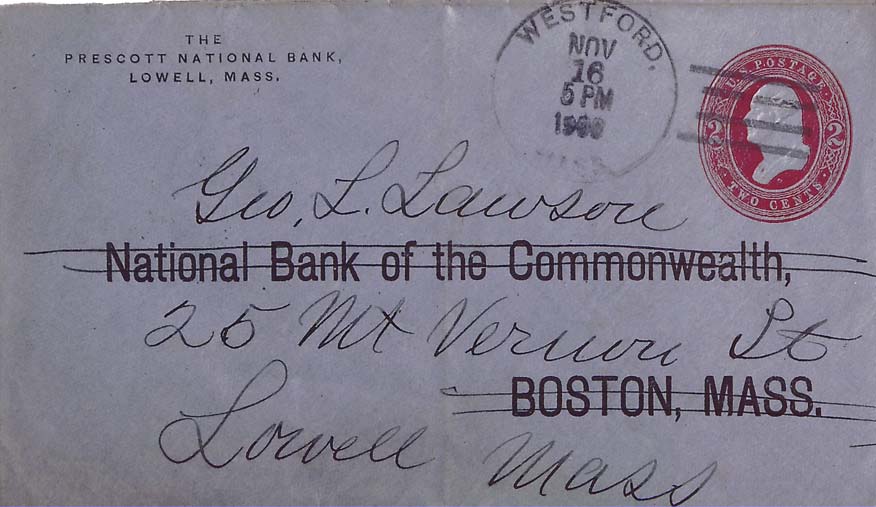 THE
PRESCOTT NATIONAL BANK,
LOWELL, MASS.
WESTFORD,
NOV
16
5 PM
MASS
U.S. POSTAGE
2 2
TWO CENTS
Geo. L. Lawson
National Bank of the Commonwealth,
25 Mt Vernon St
BOSTON, MASS.
Lowell Mass